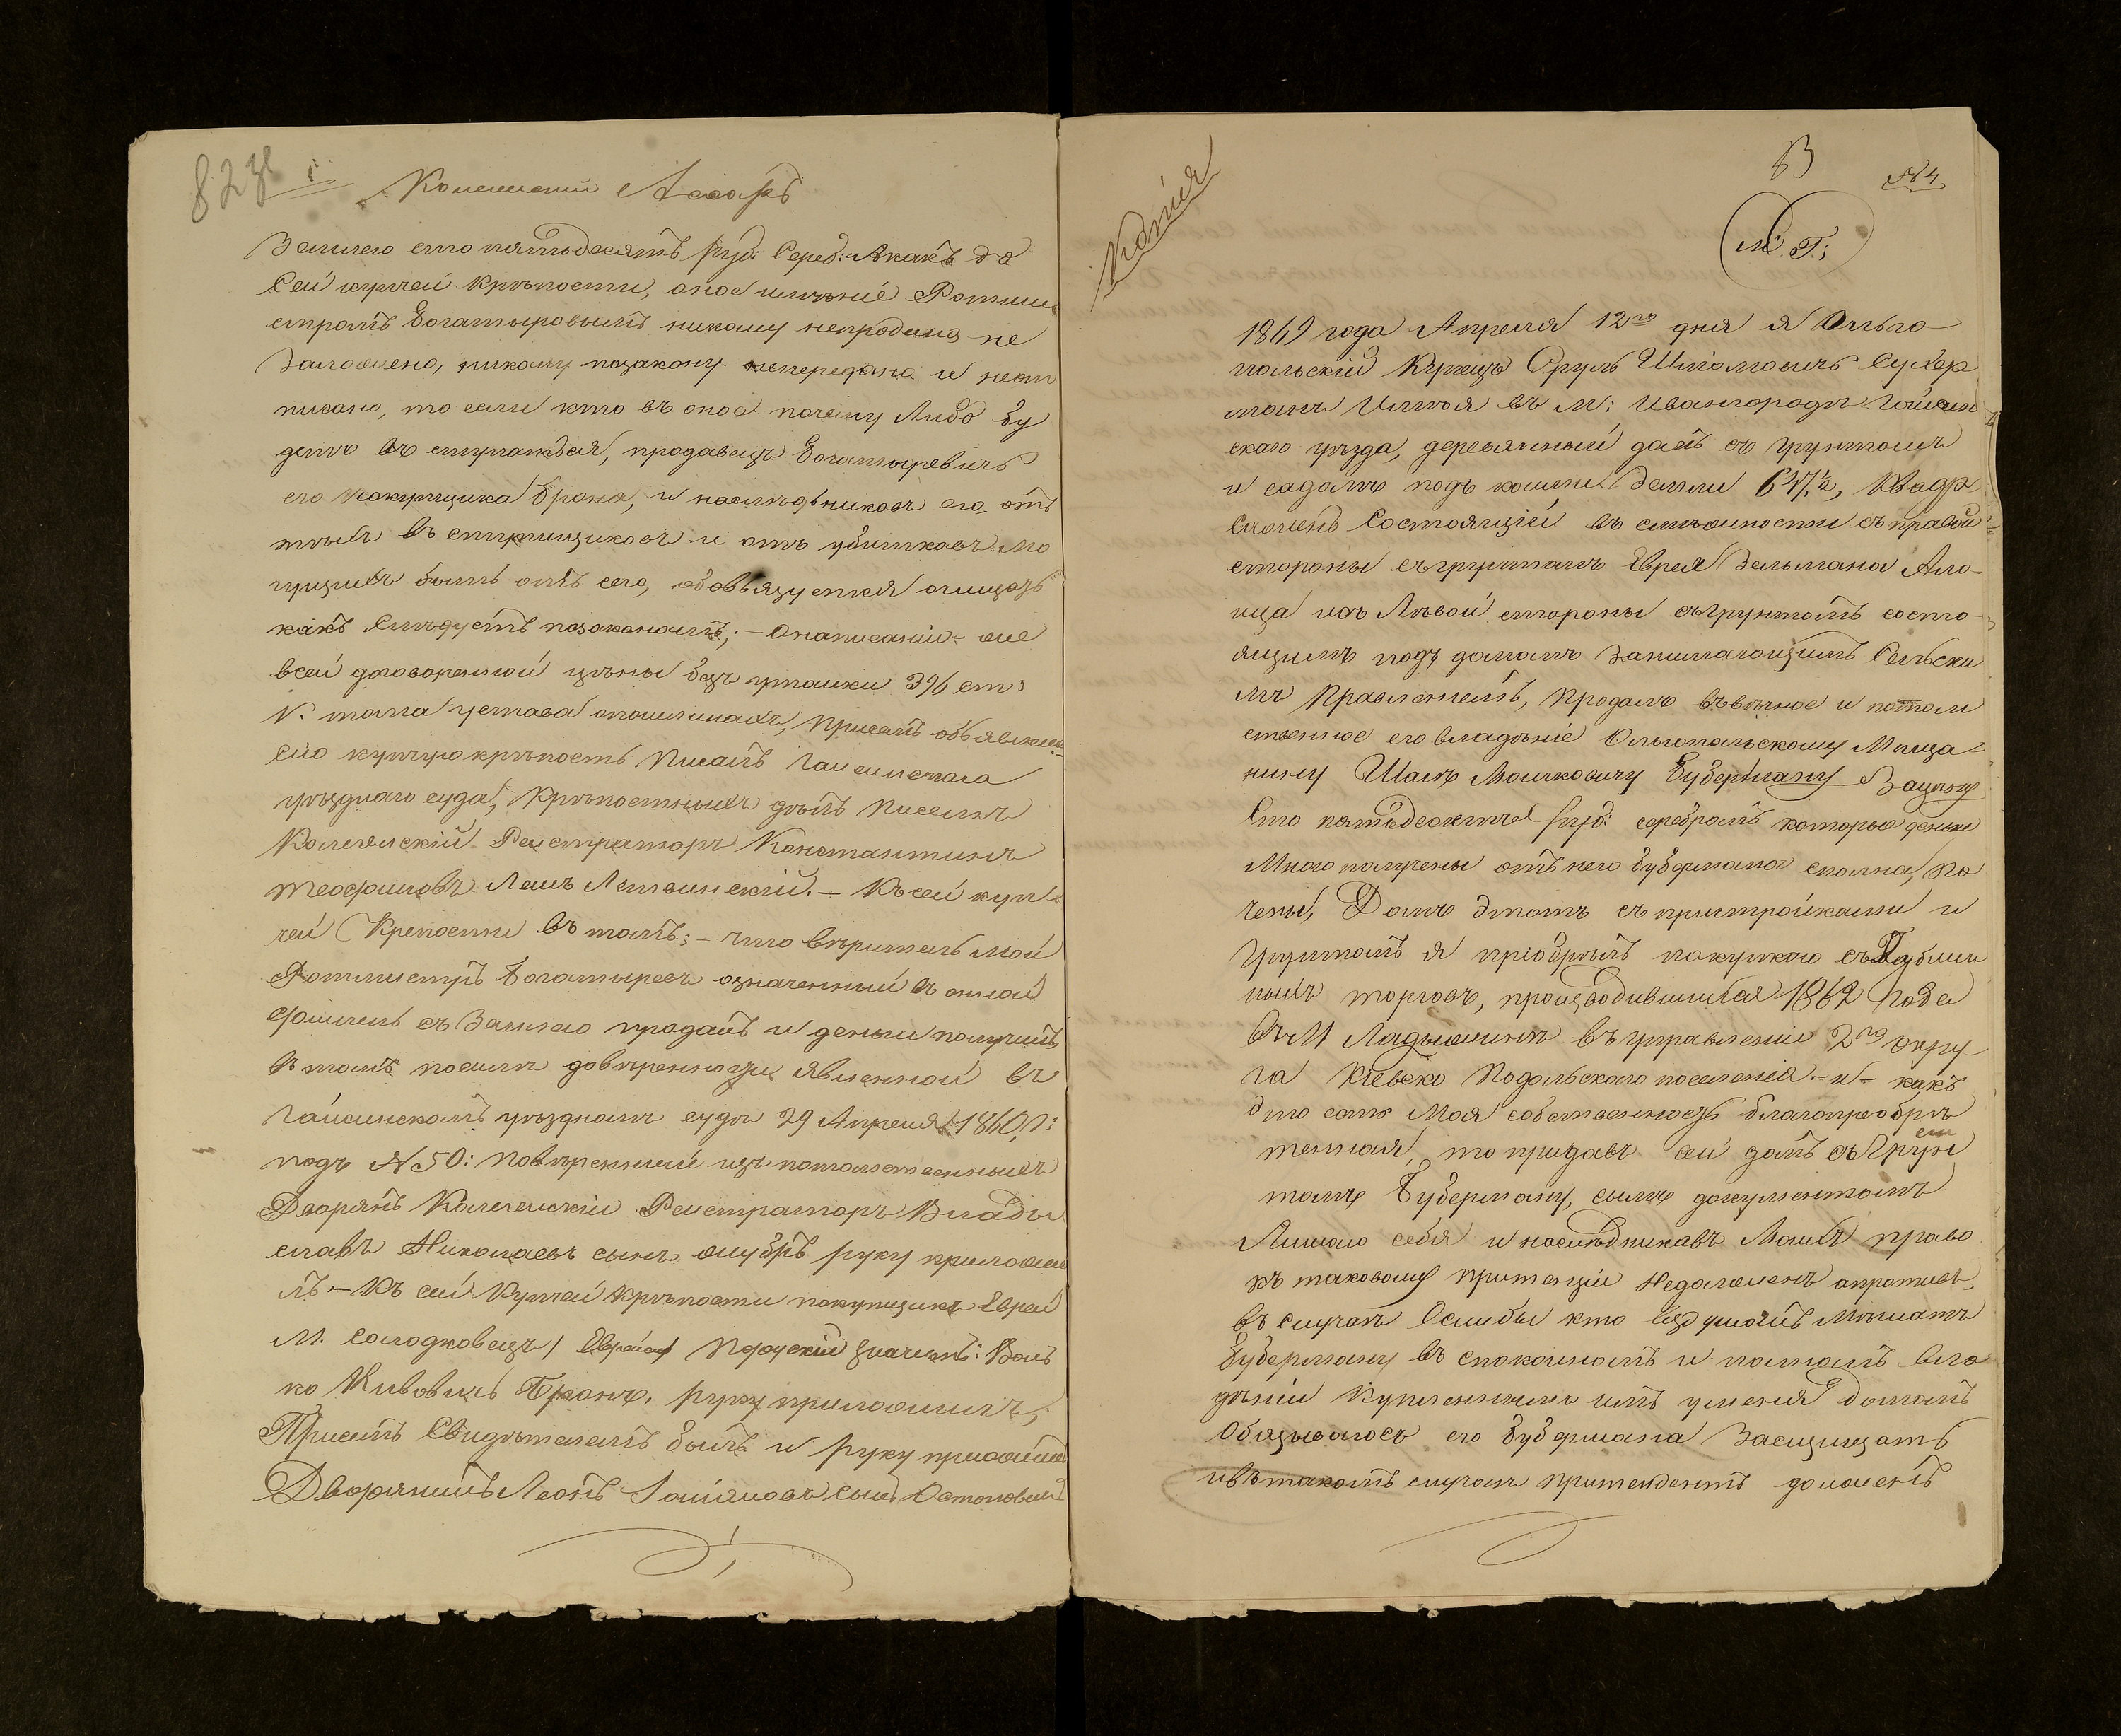 823
Коллежскій Ассесоръ
Землею сто пятьдесятъ руб: Сереб: А какъ до
Сей купчей крѣпости, оное имѣніе Ротми
стромъ Богатыровымъ никому непродано не
Заложено, никому позакону непередано и неот
писано, то если кто въ оное почему Либо бу
детъ въ ступатся, продавецъ Богатыревичъ
его покупщика Брона, и наслѣдниковъ его отъ
тѣхъ въступщиковъ и отъ убытковъ мо
гущихъ быть отъ сего, обовьязуется очищать
какъ Слѣдуетъ позаконамъ; – Онаписаніи- же
всей договоренной цѣны безъ утайки 396 ст:
V. тома устава опошлинахъ, присемъ объявлено
Сію купчую крѣпость Писалъ Гайсинскаго
уѣзднаго суда, Крѣпостныхъ дѣлъ Писецъ
Колежскій Регистраторъ Константинъ
Теофиловъ Летвинскій. – Къ сей куп
чей Крепости въ томъ; – что вѣритель мой
Ротмистръ Богатыревъ означенный въ оной
съ Землею продалъ и деньги получилъ
въ томъ посилѣ довѣренности явленной въ
Гайсинскомъ уѣздномъ судѣ 29 Апреля 1860 г:
подъ N 50: повѣренный изъ потомственныхъ
Дворянъ Колежскій Регистраторъ Влады
славъ Николаевъ сынъ руку приложи
лъ – Къ сей Купчей крѣпости покупщикъ Еврей
М. Солодковецъ / Еврейски порусски значитъ: Воль
ко Кивовичъ Бронъ, руку приложилъ,
Присемъ Свидѣтелемъ былъ и руку приложилъ
Дворянинъ Леонъ сынъ
Копія
В
N 4
М. Г.;
1869 года Апреля 12го дня я Ольго
польскій Купецъ Сруль Шліомовичъ Сухер
манъ Имѣя въ М: Ивангородѣ Гайсин
скаго уѣзда, деревянный домъ съ грунтомъ
и садомъ подъ коими Земли 647½, Квадр
Сажень Состоящій въ смѣжности съ правой
стороны съгрунтомъ Еврея Зельмана Ало
ица изъ Лѣвой стороны съгрунтомъ состо
ящимъ подъ домомъ Занимающимъ Сельски
мъ Правленіемъ, продалъ въвѣчное и потом
ственное его владѣніе Ольгопольскому Мѣща
нину Шаѣ Мошковичу Губерману Зацѣну
Сто пятьдесятъ руб: серебромъ которые деньги
Мною получены отъ него Губермана сполна, По
чему, Домъ Этотъ съ пристройками и
грунтомъ я пріобрѣлъ покупкою съ Публич
ныхъ торговъ, производившихся 1862 года
Въ М Ладыжинѣ въ управленіи 2го окру
га Кіевско Подольскаго поселенія. – и – какъ
это есть Моя собственность благопреобрѣ
тенная, то придавъ сей домъ съ Грун
томъ Губерману, симъ документомъ
Лишаю себя и наслѣдниковъ Моихъ право
къ таковому притензіи Недолженъ
въ случаѣ Еслибы кто вздумалъ мѣшать
Губерману въ спокойномъ и полномъ вла
дѣніи Купленнымъ имъ уменя домомъ
Обязываюсь его Губермана Защищать
ивътакомъ случаѣ притендентъ долженъ